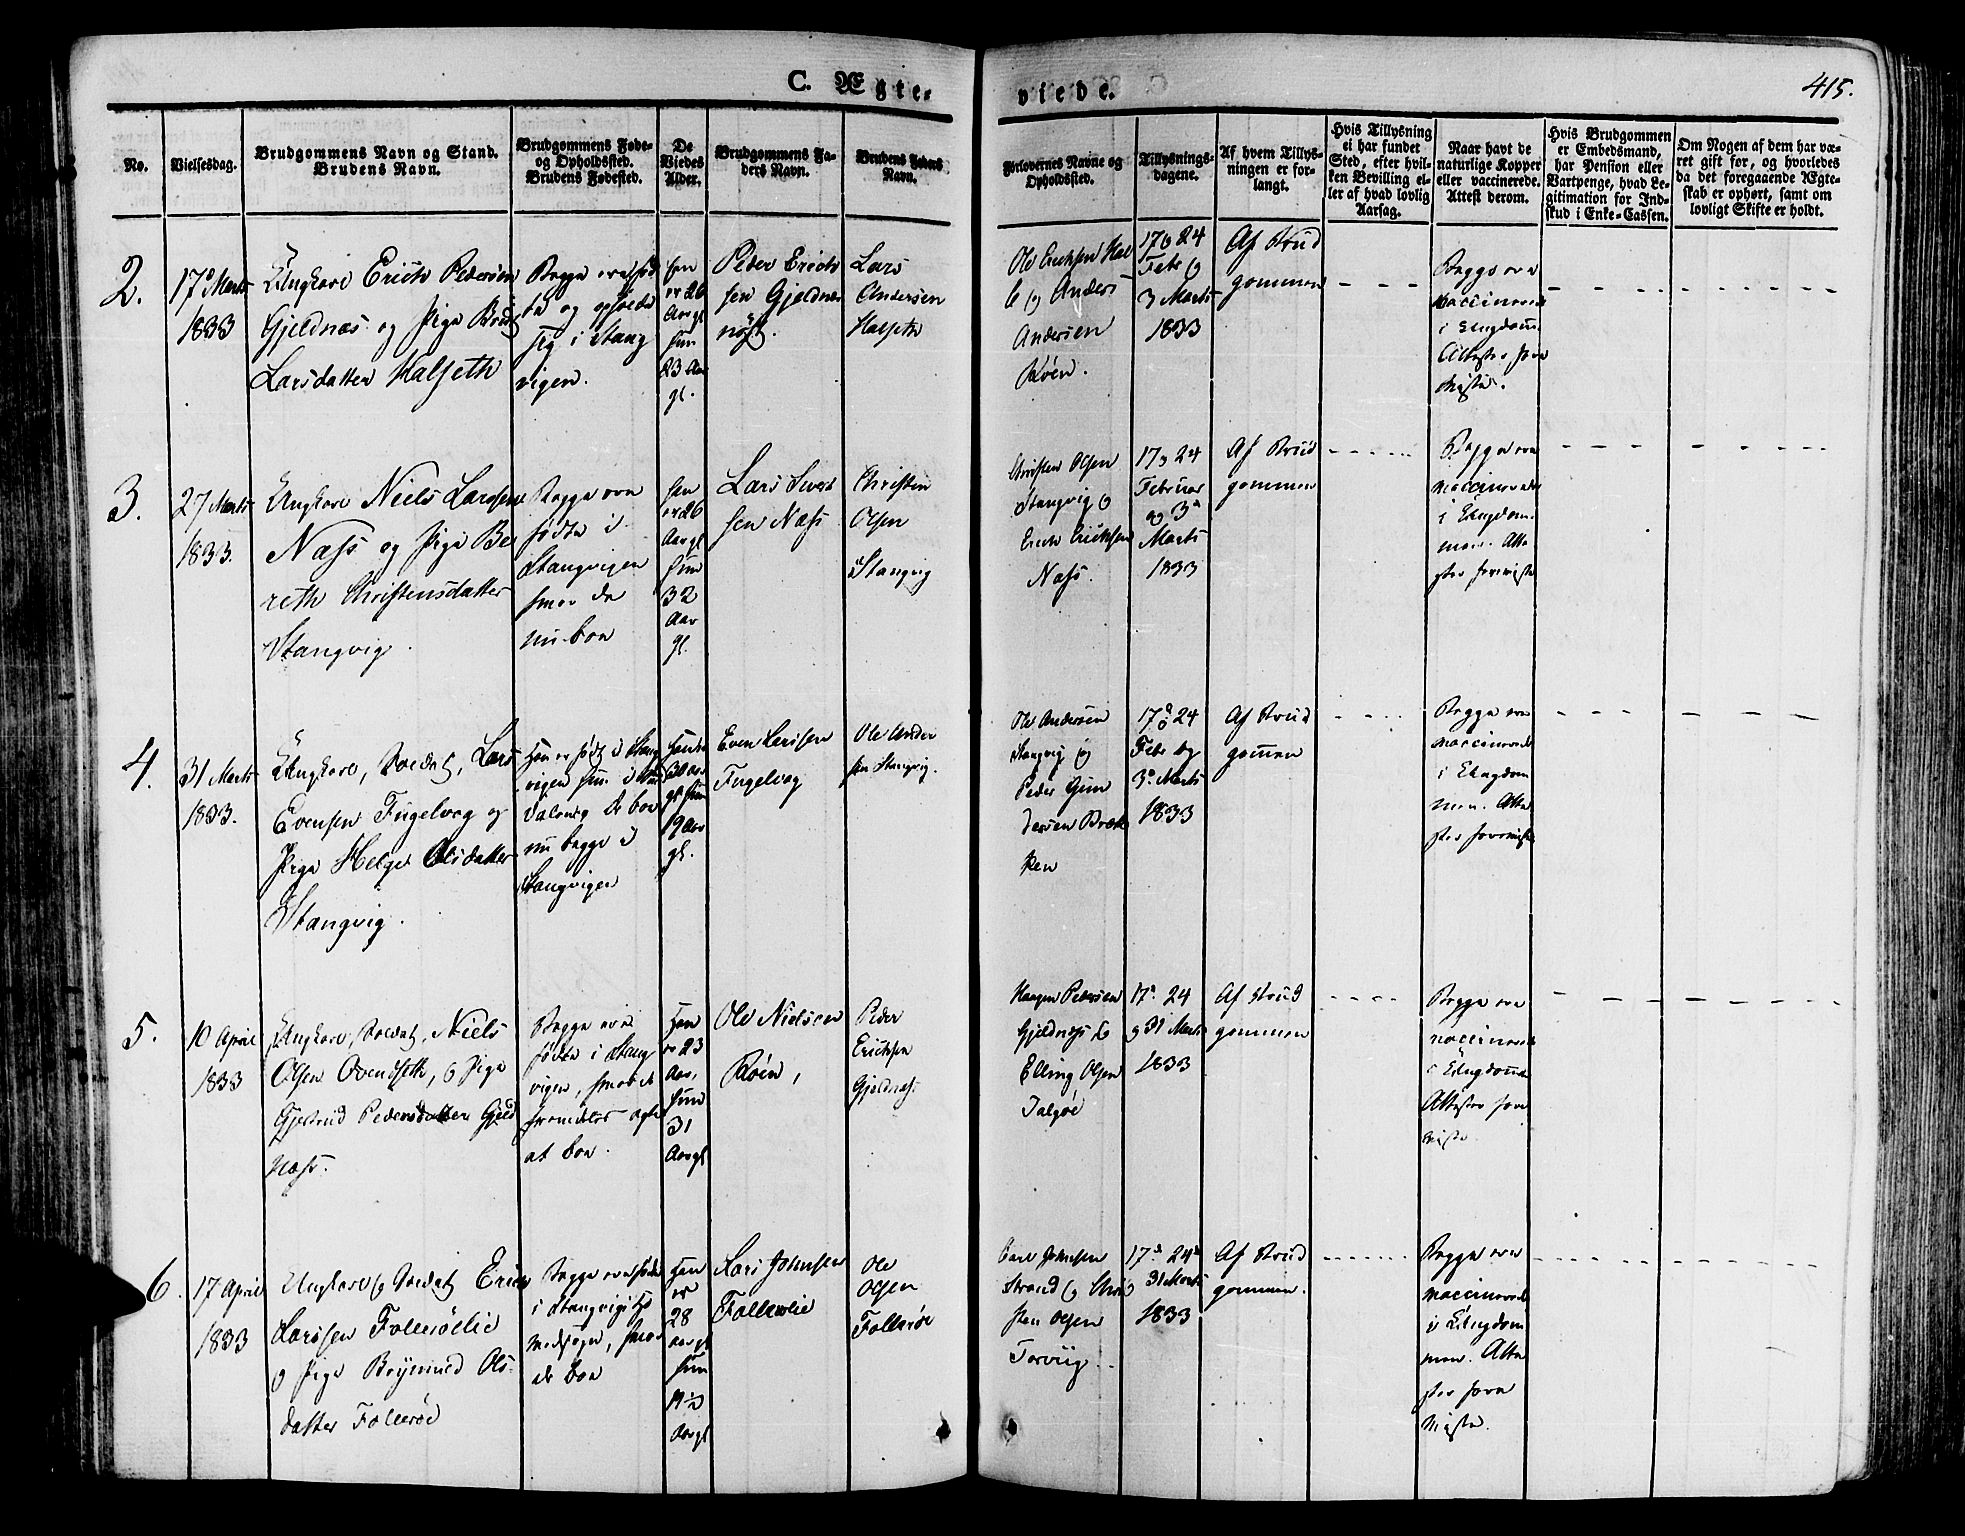 C. Ægte-
viede.
415.
No.
Vielsesdag.
Brudgommens Navn og Stand.
Brudens Navn.
Brudgommens Føde-
og Opholdssted.
Brudens Fødested.
De
Viedes
Alder.
Brudgommens Fa-
ders Navn.
Brudens Faders
Navn.
Forlovernes Navne og
Opholdssted.
Tillysnings-
dagene.
Af hvem Tillys-
ningen er for-
langt.
Hvis Tillysning
ei har fundet
Sted, efter hvil-
ken Bevilling el-
ler af hvad lovlig
Aarsag.
Naar havt de
naturlige Kopper
eller vaccinerede.
Attest derom.
Hvis Brudgommen
er Embedsmand,
har Pension eller
Vartpenge, hvad Le-
gitimation for Ind-
skud i Enke-Cassen.
Om Nogen af dem har væ-
ret gift før, og hvorledes
da det foregaaende Ægte-
skab er ophørt, samt om
lovligt Skifte er holdt.
2.
17 Marts
1833
Ungkarl Erich Pedersen
Gjeldnæs og Pige
Larsdatter Halseth
Begge ere fød
te og opholde
sig i Stang
vigen.
han
er 26
Aargl
hun
23 Aar
gl.
Peder Erich
sen Gjeldnæs
Lars
Andersen
Halseth
Ole Erichsen
Anders
Andersen
Røen.
17 24
Febr
3 Marts
1833
Af Brud
gommen
Begge ere
vaccinerede
i Ungdom
Attester fore
vist.
3.
27 Marts
1833.
Ungkarl Niels Larsen
Næss og Pige Be
reth Christensdatter
Stangvig.
Begge ere
fødte i
Stangvigen
hvor de
nu boe
han
er 26
Aargl
hun
32
Aar
gl.
Lars Siverd
sen Næss
Christen
Olsen
Stangvig
Christen Olsen
Stangvig
Erich Erichsen
Næss.
17 24
Februar
og 3
Marts
1833
Af Brud
gommen
Begge ere
vaccinerede
i Ungdom
men. Atte
ster foreviste
4.
31 Marts
1833.
Ungkarl, Soldat, Lars
Evensen Fugelvog og
Pige Helge Olsdatter
Stangvig.
Han er født i Stang
vigen hun i
dalen de boe
nu begge i
Stangvigen
Han er
30 aar
gl hun
19 Aar
gl.
Even Larsen
Fugelvog
Ole Ander
sen Stangvig.
Ole Andersen
Stangvig
Peder Gun
dersen Bræk
ken
17 24
Febr og
3 Marts
1833
Af Brud
gommen
Begge ere
vaccinerede
i Ungdom
men. Atte
ster foreviste
5.
10 April
1833
Ungkarl, Soldat, Niels
Olsen Ovendseth, Pige
Gjertrud Pedersdatter Gjeld
næss.
Begge ere
fødte i Stang
vigen, hvor de
fremdeles agte
at boe.
Han
er 23
Aar,
hun
31
Aargl
Ole Nielsen
Røen,
Peder
Erichsen
Gjeldnæss
Haagen Pedersen
Gjeldnæss
Elling Olsen
Talgøe
17 24
31 Marts
1833
Af Brud
gommen
Begge ere
vaccinerede
i Ungdom
Attester fore
viste.
6.
17 April
1833
Ungkarl Soldat Erich
Larsen Follesølie
Pige Brynild Ols-
datter Follesøe
Begge ere fødte
i Stangvigs Ho
vedsogn, hvor
de boe
Han
er
28
aargl
hun
19½
Aargl
Lars Johnsen
Follesølie
Ole
Olsen
Follesøe
Johnsen
Strand Chri
sten Olsen
Torvig.
17 24
31 Marts
1833
Af Brud
gommen.
Begge ere
vaccinerede
i Ungdom
men. Atte
ster fore
viste.